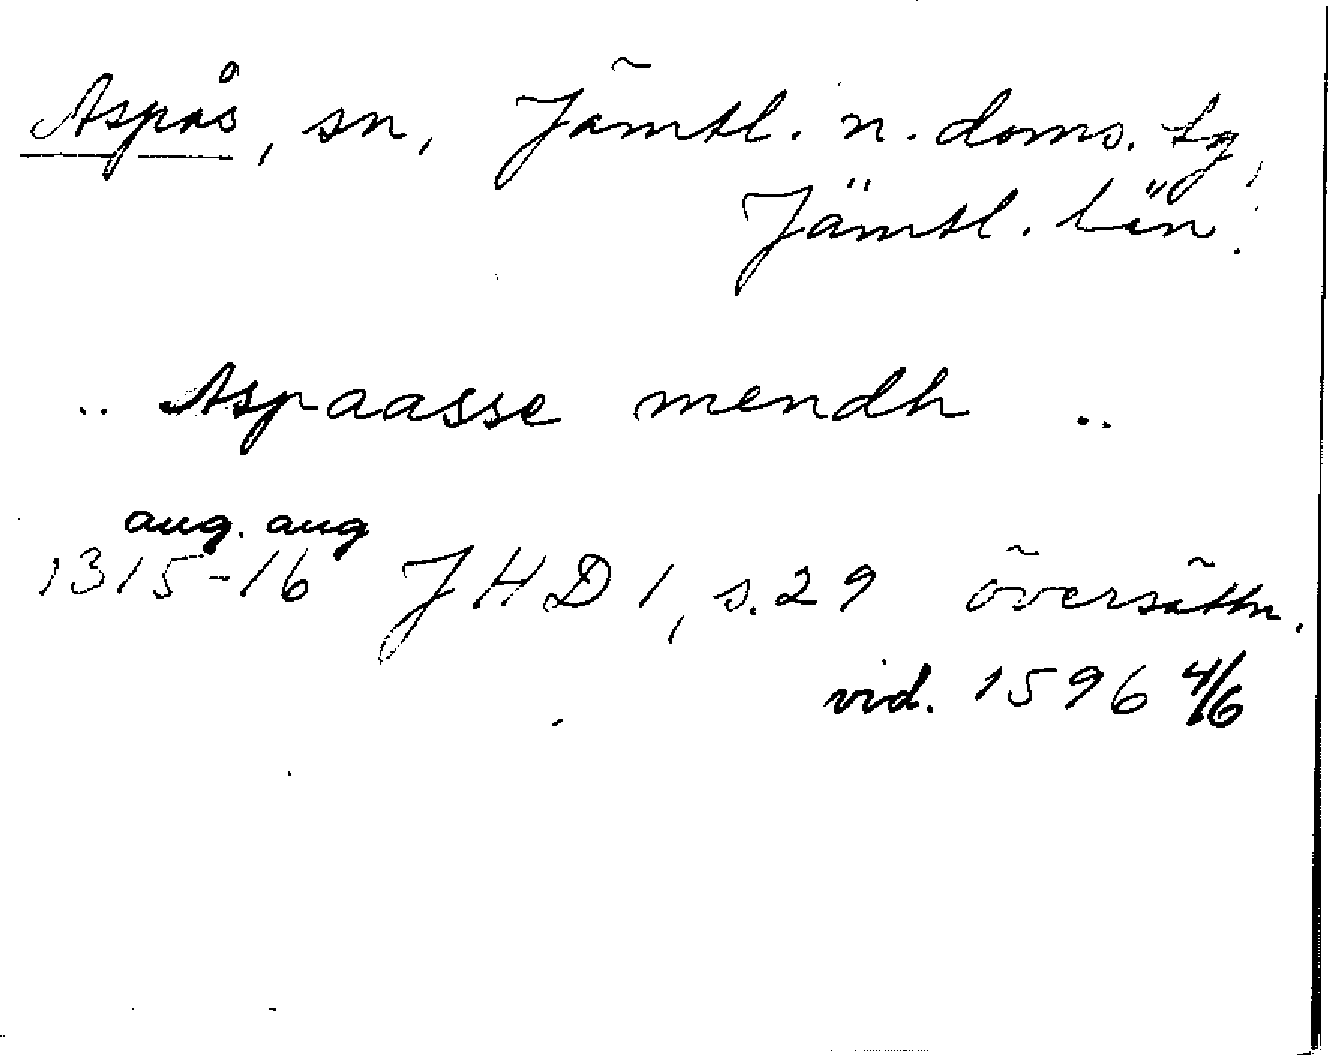 Aspås, sn, Jämtl. n. doms. tg,
Jämtl. län.
.. Aspaasse mendh ..
aug. aug
1315-16 JHD 1, s. 29 översättn.
vid. 1596 4/6